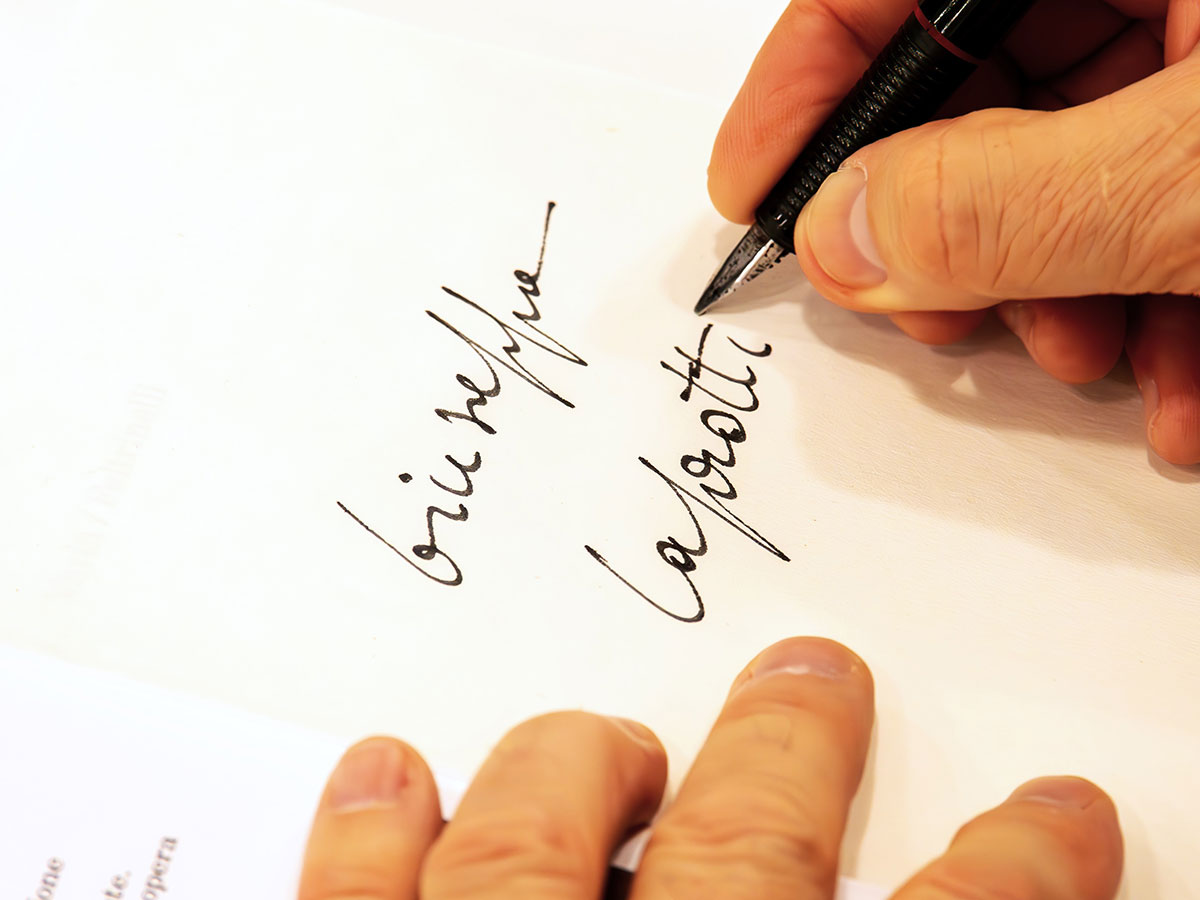 Giuseppe
Caprotti
one
te.
opera